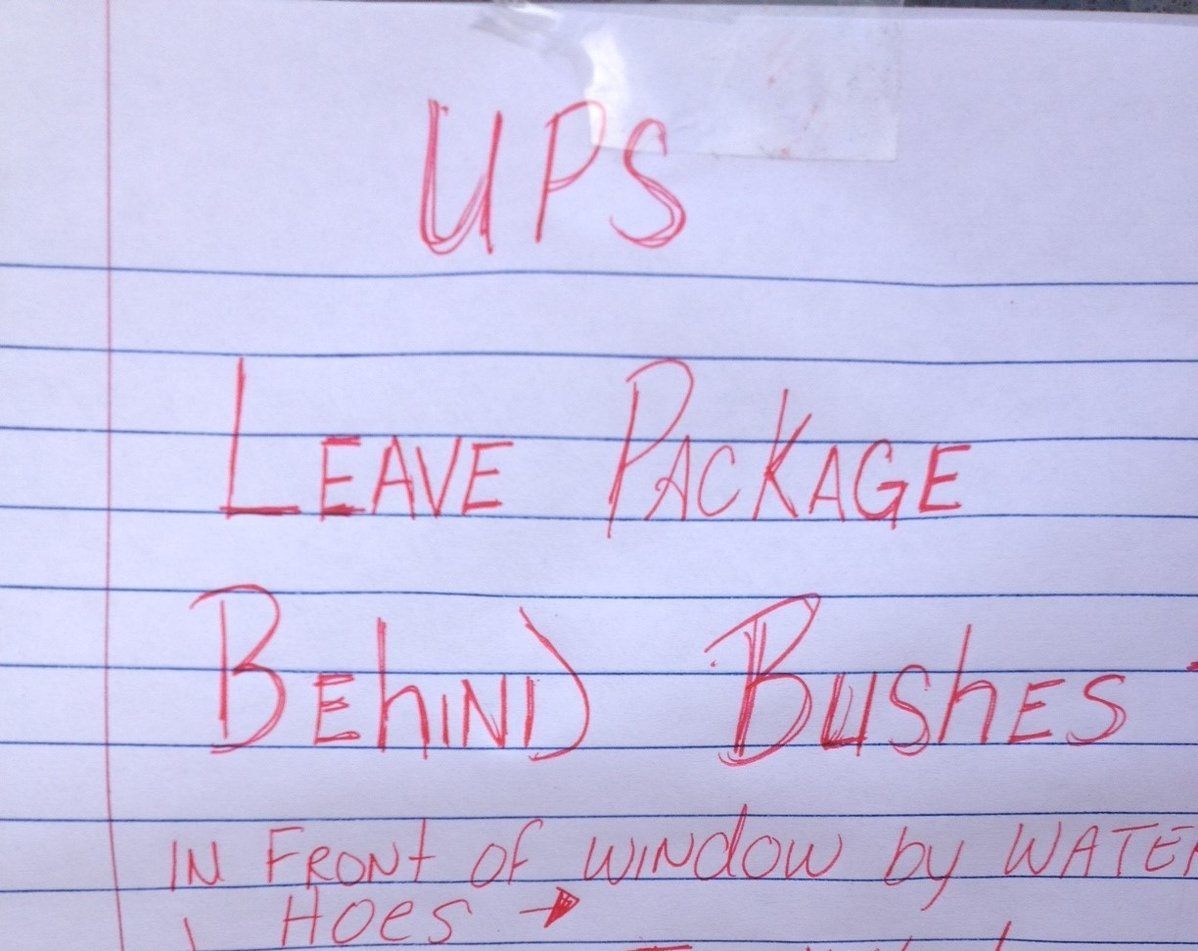 UPS
LEAVE PACKAGE
BEhIND BUShES
IN FRONt OF WINdOW by WATER
HOES →